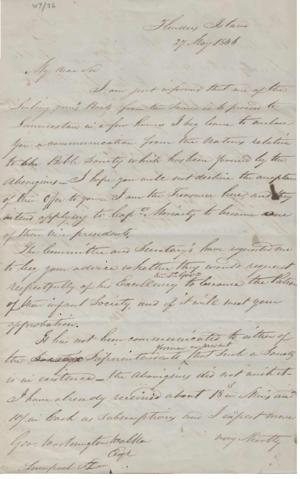 47/26
Flinders Island
27 May 1846
My dear Sir
I am just informed that one of the
Sealing men's Boats from the Sound is to proceed to
Launceston in a few hours I beg leave to enclose
you a communication from the Natives relative
to the Bible Society which has been formed by the
Aborigines — I hope you will not decline the acceptance
of this Office to you I am the Treasurer here and they
intend applying to Capt Moriarty to become one
of their vice presidents
The Committee and Secretary's have requested me
to beg your advice whether they would request
respectfully of his Excellency to become the Patron
of their infant Society, and if it will meet your
approbation.
It has not been communicated to either of
the Superintendents former or present that such a Society
is in existence — the Aborigines did not wish it
I have already received about 18/ in and
10/ in Cash as Subscriptions and I expect more
very shortly
Geo Washington Walker
Esqr
Liverpool St